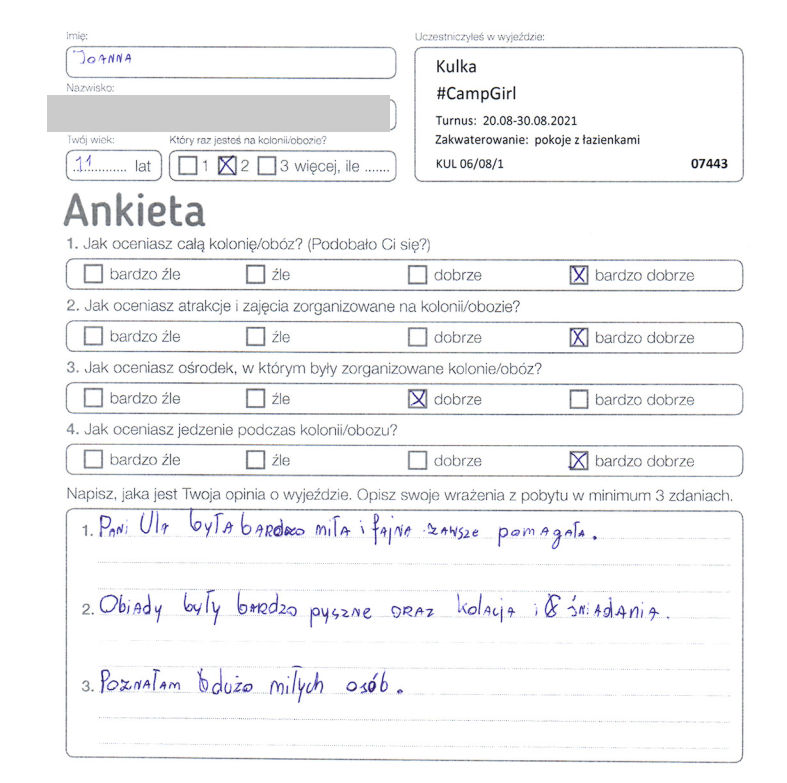 Imię:
Joanna
Nazwisko:
Twój wiek:
11 lat
Który raz jesteś na kolonii/obozie?
1 2 3 więcej, ile .......
Uczestniczyłeś w wyjeździe:
Kulka
#CampGirl
Turnus: 20.08-30.08.2021
Zakwaterowanie: pokoje z łazienkami
KUL 06/08/1 07443
Ankieta
1. Jak oceniasz całą kolonię/obóz? (Podobało Ci się?)
bardzo źle źle dobrze bardzo dobrze
2. Jak oceniasz atrakcje i zajęcia zorganizowane na kolonii/obozie?
bardzo źle źle dobrze bardzo dobrze
3. Jak oceniasz ośrodek, w którym były zorganizowane kolonie/obóz?
bardzo źle źle dobrze bardzo dobrze
4. Jak oceniasz jedzenie podczas kolonii/obozu?
bardzo źle źle dobrze bardzo dobrze
Napisz, jaka jest Twoja opinia o wyjeździe. Opisz swoje wrażenia z pobytu w minimum 3 zdaniach.
1. Pani Ula była bardzo miła i fajna zawsze pomagała.
2. Obiady były bardzo pyszne oraz kolacja i śniadania.
3. Poznałam dużo miłych osób.